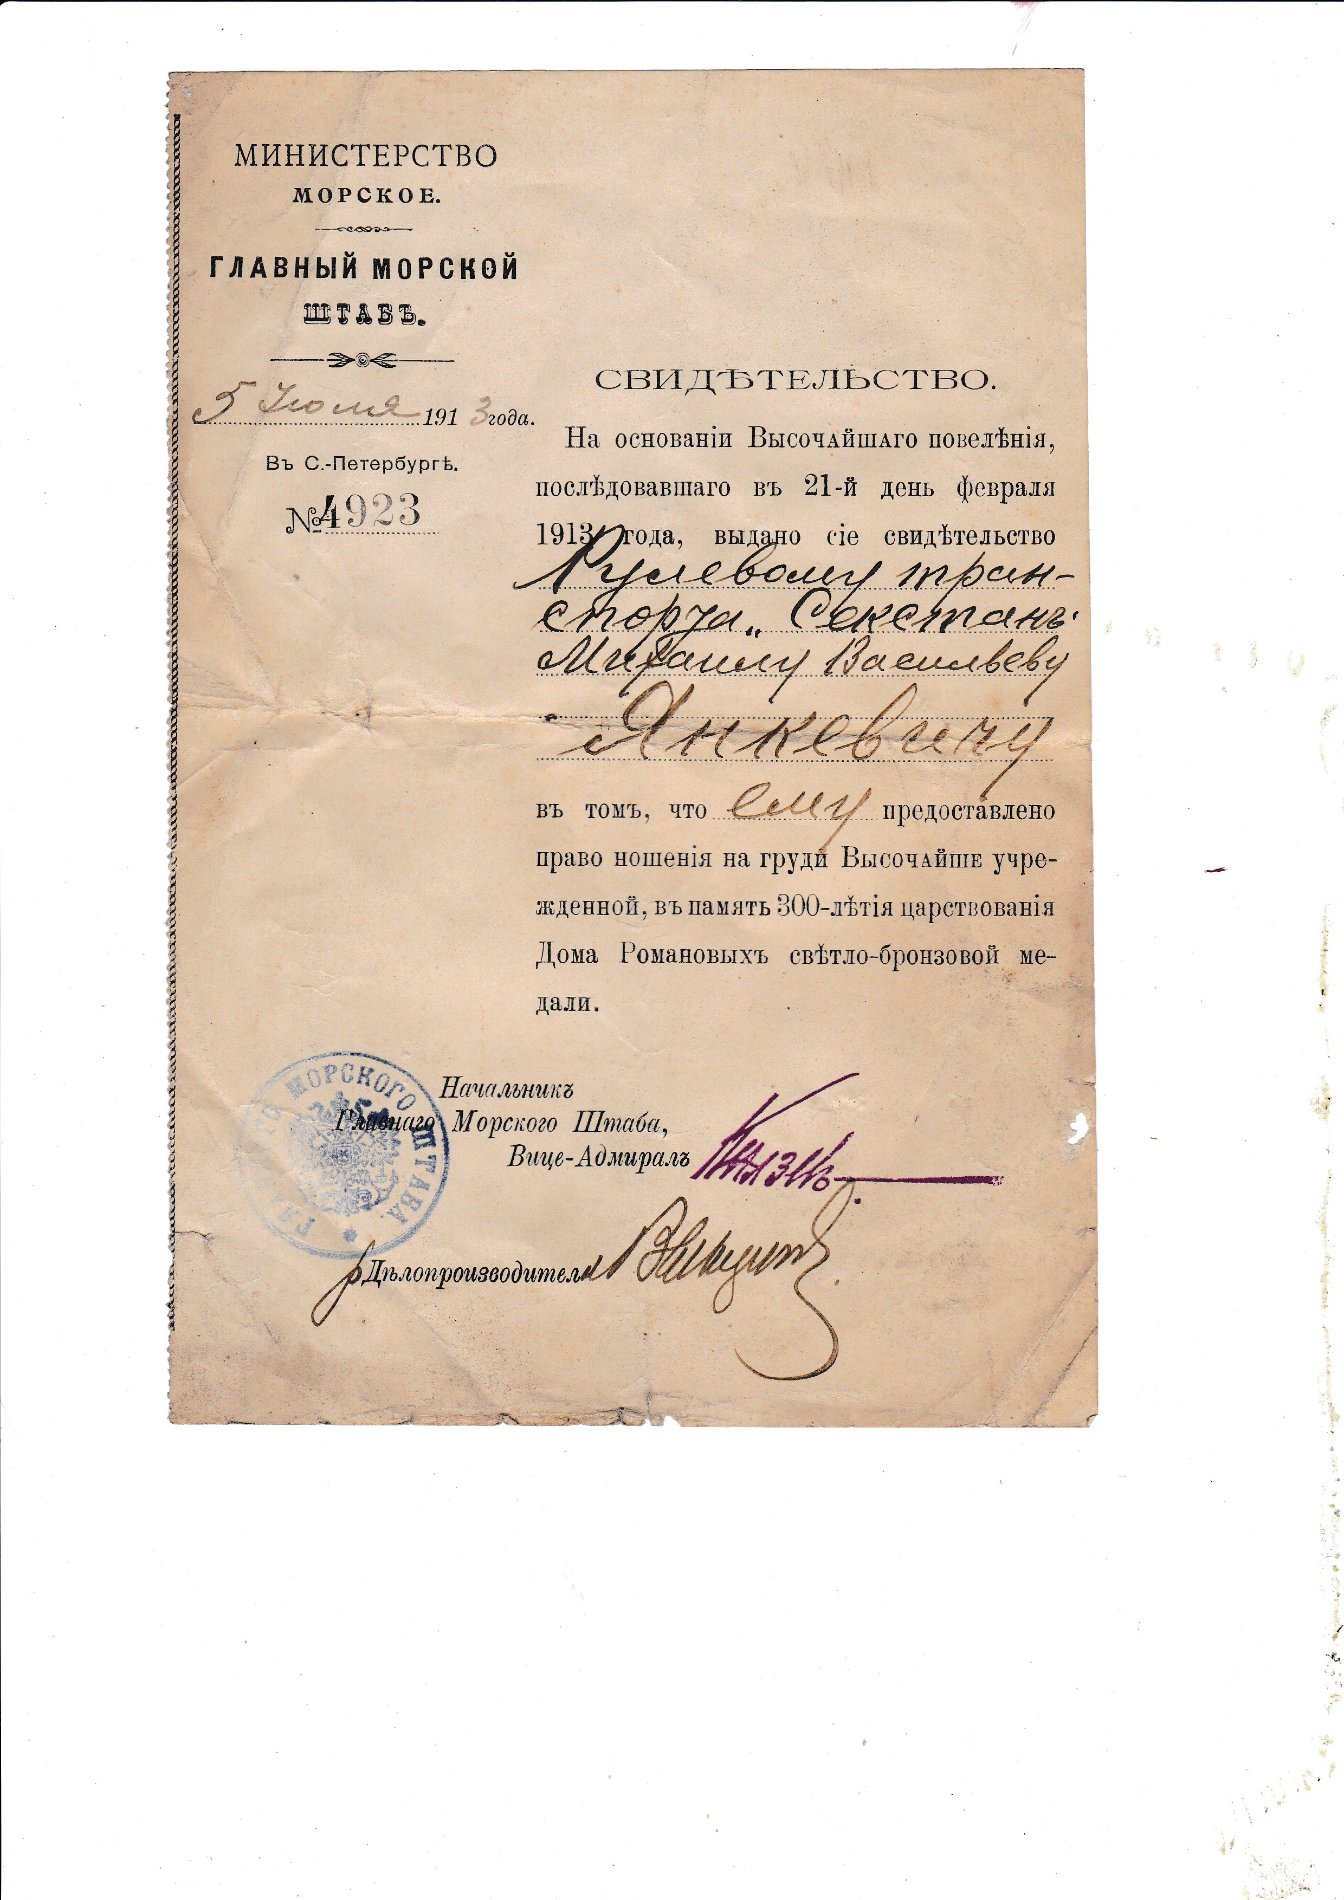 МИНИСТЕРСТВО
МОРСКОЕ.
ГЛАВНЫЙ МОРСКОЙ
ШТАБЪ.
5 Июля 1913 года.
Въ С.-Петербургѣ.
№ 4923
СВИДѢТЕЛЬСТВО.
На основаніи Высочайшаго повелѣнія,
послѣдовавшаго въ 21-й день февраля
1913 года, выдано сіе свидѣтельство
Рулевому тран-
спорта „Секстанъ"
Михаилу Васильеву
Янкевичу
въ томъ, что ему предоставлено
право ношенія на груди Высочайше учре-
жденной, въ память 300-лѣтія царствованія
Дома Романовыхъ свѣтло-бронзовой ме-
дали.
Начальникъ
Главнаго Морского Штаба,
Вице-Адмиралъ
ГЛАВНАГО МОРСКОГО ШТАБА
Дѣлопроизводителя